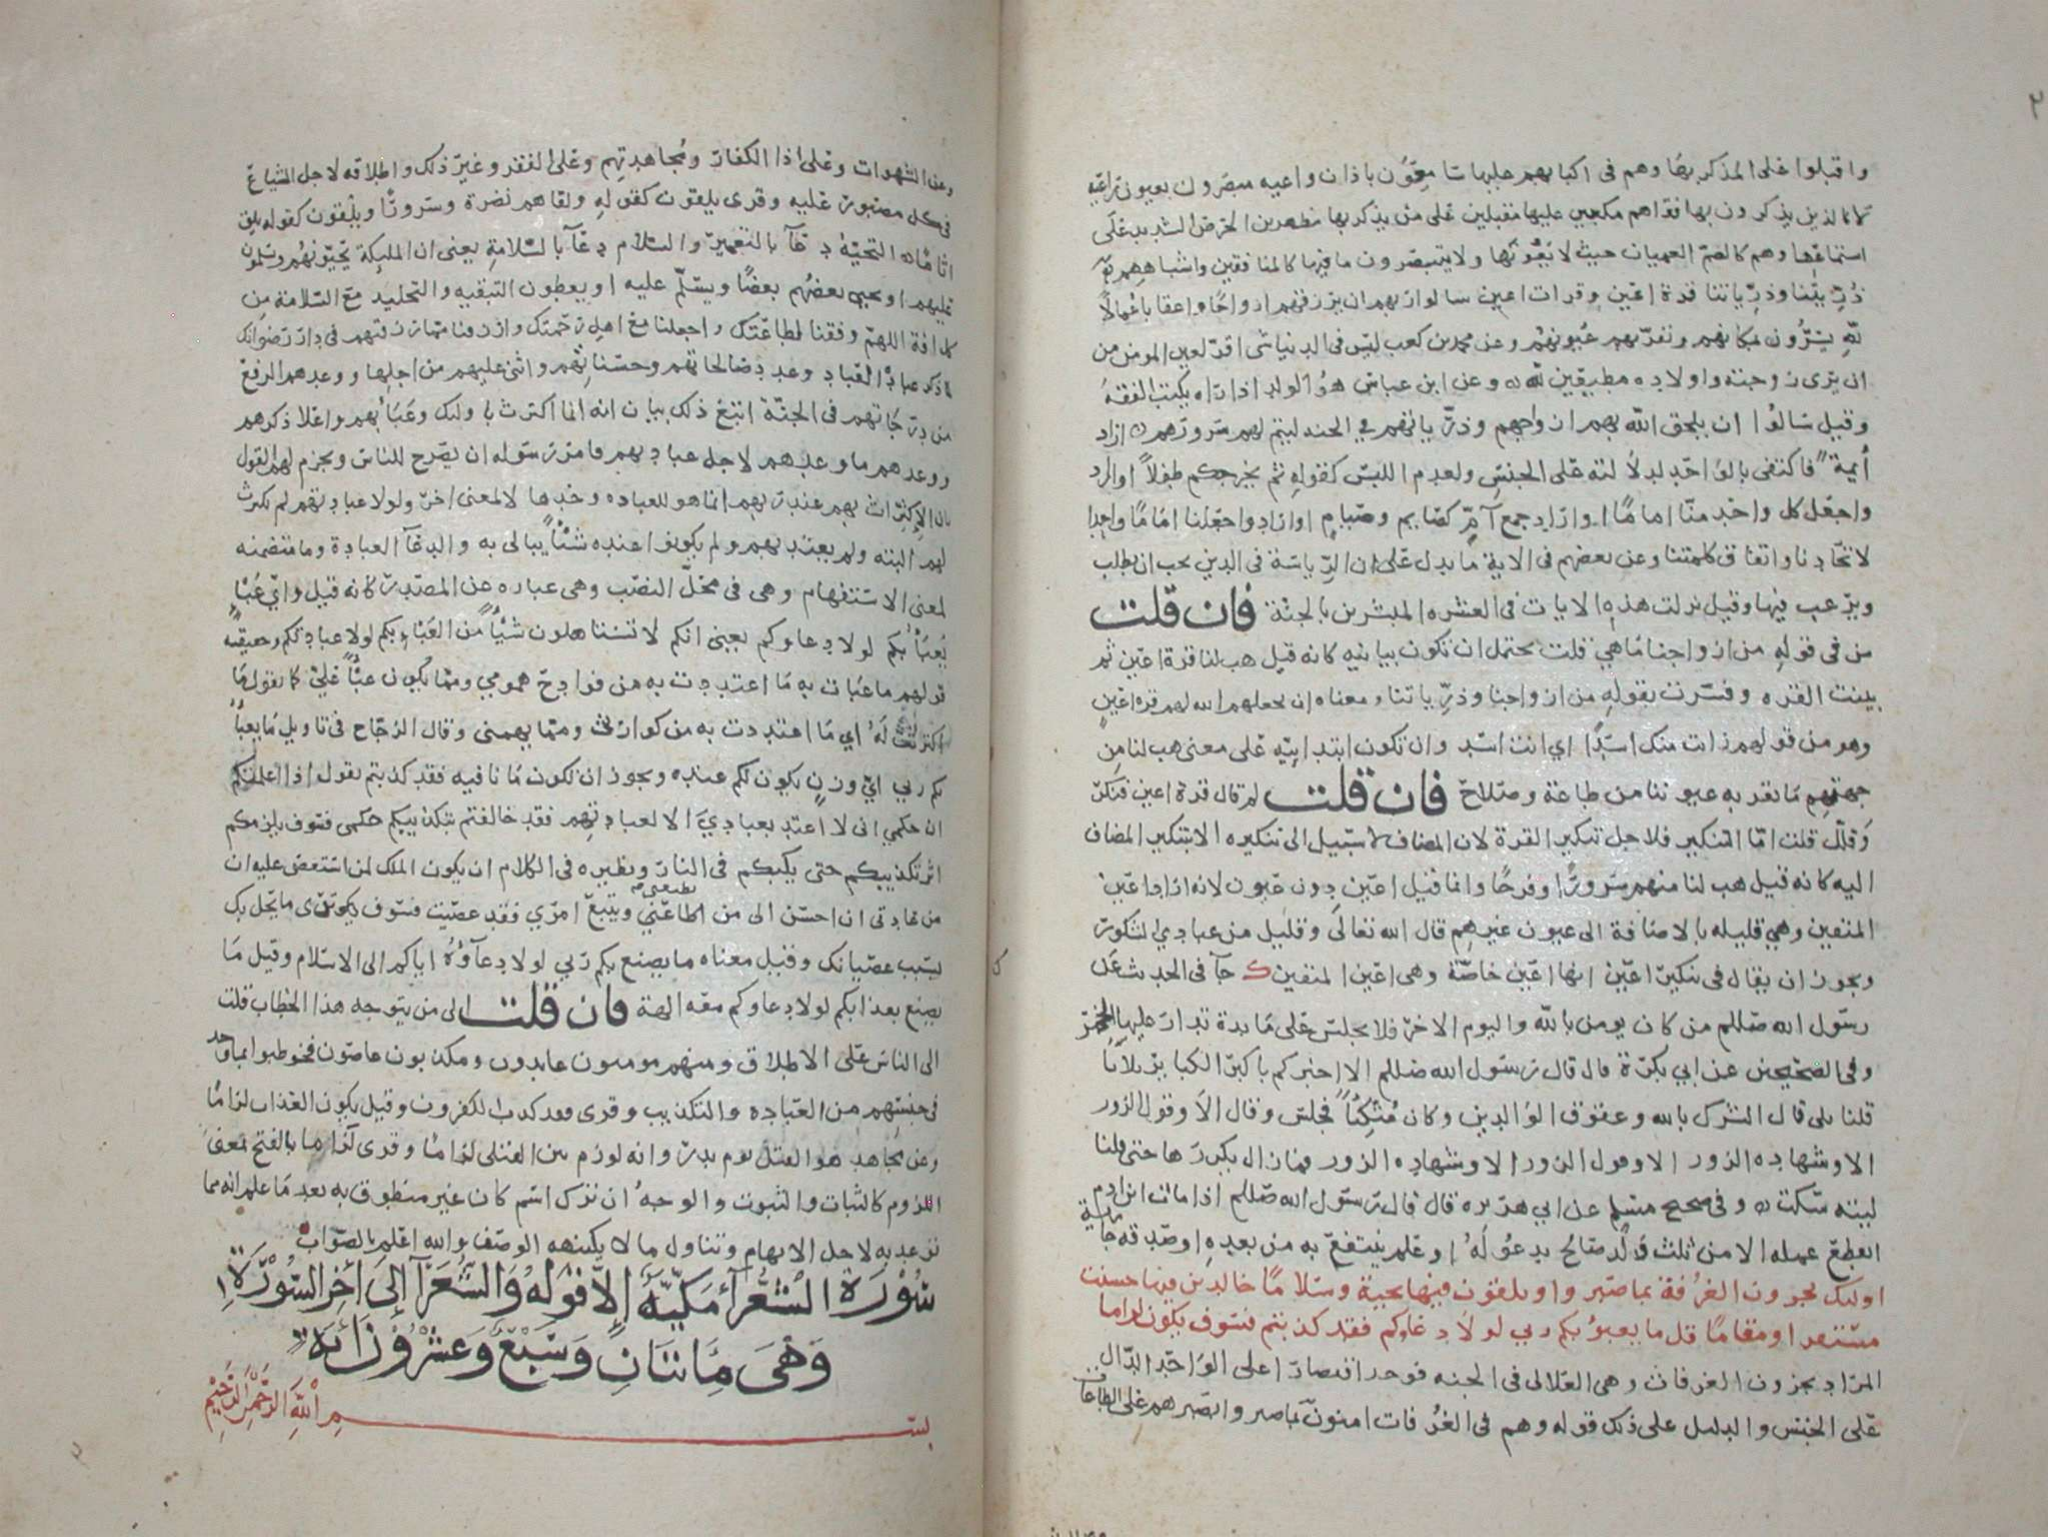 ٢
واقبلوا على المذكر بها وهم في اكبابهم عليها سامعون باذان واعيه مبصرون بعيون راعيه
كالذين يذكرون بها فتراهم مكبين عليها مقبلين على من يذكر بها مظهرين الحرص الشديد على
استماعها وهم كالصم العميان حيث لا يعونها ولا يتبصرون ما فيها كالمنافقين واشباههم
ذريتنا وذرياتنا قرة اعين وقرات اعين سالوا ربهم ان يرزقهم ازواجا واعقابا عمالا
لله يسرون بمكانهم وتقر بهم عيونهم وعن محمد بن كعب ليس في الدنيا شي اقر لعين المومن من
ان يرى زوجته واولاده مطيعين لله وعن ابن عباس هو الولد اذا راه يكتب الفقه
وقيل سالوا ان يلحق الله بهم ازواجهم وذرياتهم في الجنه ليتم لهم سرورهم اراد
أيمة فاكتفى بالواحد لدلالته على الجنس ولعدم اللبس كقوله ثم يخرجكم طفلا او اراد
واجعل كل واحد منا اماما او اراد جمع آم كصايم وصيام او اراد واجعلنا اماما واحدا
لاتحادنا واتفاق كلمتنا وعن بعضهم في الاية ما يدل على ان الرياسة في الدين يجب ان يطلب
ويرغب فيها وقيل نزلت هذه الايات في العشره المبشرين بالجنة فان قلت
من في قوله من ازواجنا ما هي قلت يحتمل ان تكون بيانيه كانه قيل هب لنا قرة اعين ثم
بينت القره وفسرت بقوله من ازواجنا وذرياتنا ومعناه ان يجعلهم الله لهم قرة اعين
وهو من قولهم رايت منك اسدا اي انت اسد وان تكون ابتدايية على معنى هب لنا من
جهتهم ما تقر به عيوننا من طاعة وصلاح فان قلت لم قال قرة اعين فنكر
وقلل قلت اما التنكير فلاجل تنكير القرة لان المضاف لا سبيل الى تنكيره الا بتنكير المضاف
اليه كانه قيل هب لنا منهم سرورا وفرحا وانما قيل اعين دون عيون لانه اراد اعين
المتقين وهي قليله بالاضافة الى عيون غيرهم قال الله تعالى وقليل من عبادي الشكور
ويجوز ان يقال في تنكير اعين انها اعين خاصة وهي اعين المتقين ك جآ في الحديث عن
رسول الله صللم من كان يومن بالله واليوم الاخر فلا يجلس على مايدة تدار عليها الخمر
وفي الصحيحين عن ابي بكرة قال قال رسول الله صللم الا اخبركم باكبر الكباير ثلاثا
قلنا بلى قال الشرك بالله وعقوق الوالدين وكان متكئا فجلس وقال الا وقول الزور
الا وشهاده الزور الا وقول الزور الا وشهاده الزور فما زال يكررها حتى قلنا
ليته سكت وفي صحيح مسلم عن ابي هريره قال قال رسول الله صللم اذا مات ابن ادم
انقطع عمله الا من ثلث ولد صالح يدعو له او علم ينتفع به من بعده او صدقه جارية
اوليك يجزون الغرفة بما صبروا ويلقون فيها تحية وسلاما خالدين فيها حسنت
مستقرا ومقاما قل ما يعبؤ بكم ربي لولا دعاوكم فقد كذبتم فسوف يكون لزاما
المراد يجزون الغرفات وهي العلالي في الجنه فوحد اقتصارا على الواحد الدال
على الجنس والدليل على ذلك قوله وهم في الغرفات امنون بما صبروا بصبرهم على الطاعات
وعن الشهوات وعلى اذا الكفار ومجاهدتهم وعلى الفقر وغير ذلك واطلاقه لاجل الشياع
في كل مصبور عليه وقرى يلقون كقوله ولقاهم نضرة وسرورا ويلقون كقوله يلق
اثاما التحية دعآ بالتعمير والسلام دعآ بالسلامة يعني ان المليكة يحيونهم ويسلمون
عليهم او يحيي بعضهم بعضا ويسلم عليه او يعطون التبقيه والتخليد مع السلامة من
كل افة اللهم وفقنا لطاعتك واجعلنا مع اهل رحمتك وارزقنا مما رزقتهم في دار رضوانك
لما ذكر عبادة العباد وعدد صالحاتهم وحسناتهم واثنى عليهم من اجلها ووعدهم الرفع
من درجاتهم في الجنة اتبع ذلك ببيان انه انما اكترث باوليك وعبا بهم واعلا ذكرهم
ووعدهم ما وعدهم لاجل عبادتهم فامر رسوله ان يصرح للناس ويجزم لهم القول
بان الاكتراث بهم عند ربهم انما هو للعباده وحدها لا لمعنى اخر ولولا عبادتهم لم يكترث
لهم البته ولم يعتد بهم ولم يكونوا عنده شئا يبالى به والدعآ العبادة وما متضمنه
لمعنى الاستفهام وهي في محل النصب وهي عباره عن المصدر كانه قيل واي عبا
يعبأ بكم لولا دعاوكم يعني انكم لا تستاهلون شيئا من العبا بكم لولا عبادتكم وحقيقه
قولهم ما عبات به ما اعتددت به من فوادح همومي ومما يكون عبأ علي كما يقول ما
اكترثت له اي ما اعتددت به من كوارثي ومما يهمني وقال الزجاج في تاويل ما يعبأ
بكم ربي اي وزن يكون لكم عنده ويجوز ان تكون ما نافيه فقد كذبتم يقول اذا اعلمتكم
ان حكمي اني لا اعتد بعبادي الا لعبادتهم فقد خالفتم بتكذيبكم حكمي فسوف يلزمكم
اثر تكذيبكم حتى يكبكم في النار ونظيره في الكلام ان يقول الملك لمن استعصى عليه ان
من عادتي ان احسن الى من يطيعني ويتبع امري فقد عصيت فسوف ترى ما يحل بك
بسبب عصيانك وقيل معناه ما يصنع بكم ربي لولا دعآوه اياكم الى الاسلام وقيل ما
يصنع بعذابكم لولا دعاوكم معه الهة فان قلت الى من يتوجه هذا الخطاب قلت
الى الناس على الاطلاق ومنهم مومنون عابدون ومكذبون عاصون فخوطبوا بما وجد
في جنسهم من العبادة والتكذيب وقرى فقد كذب الكفرون وقيل يكون العذاب لزاما
وعن مجاهد هو القتل يوم بدر وانه لوزم بين القتلى لزاما وقرى لزاما بالفتح بمعنى
اللزوم كالثبات والثبوت والوجه ان نزك اسم كان غير منطوق به بعد ما علم انه مما
توعد به لاجل الابهام وتناول ما لا يكتنهه الوصف والله اعلم بالصواب
سورة الشعرآ مكية إلا قوله والشعرآ إلى أخر السورة
وهي مائتان وسبع وعشرون أية
بسم الله الرحمن الرحيم